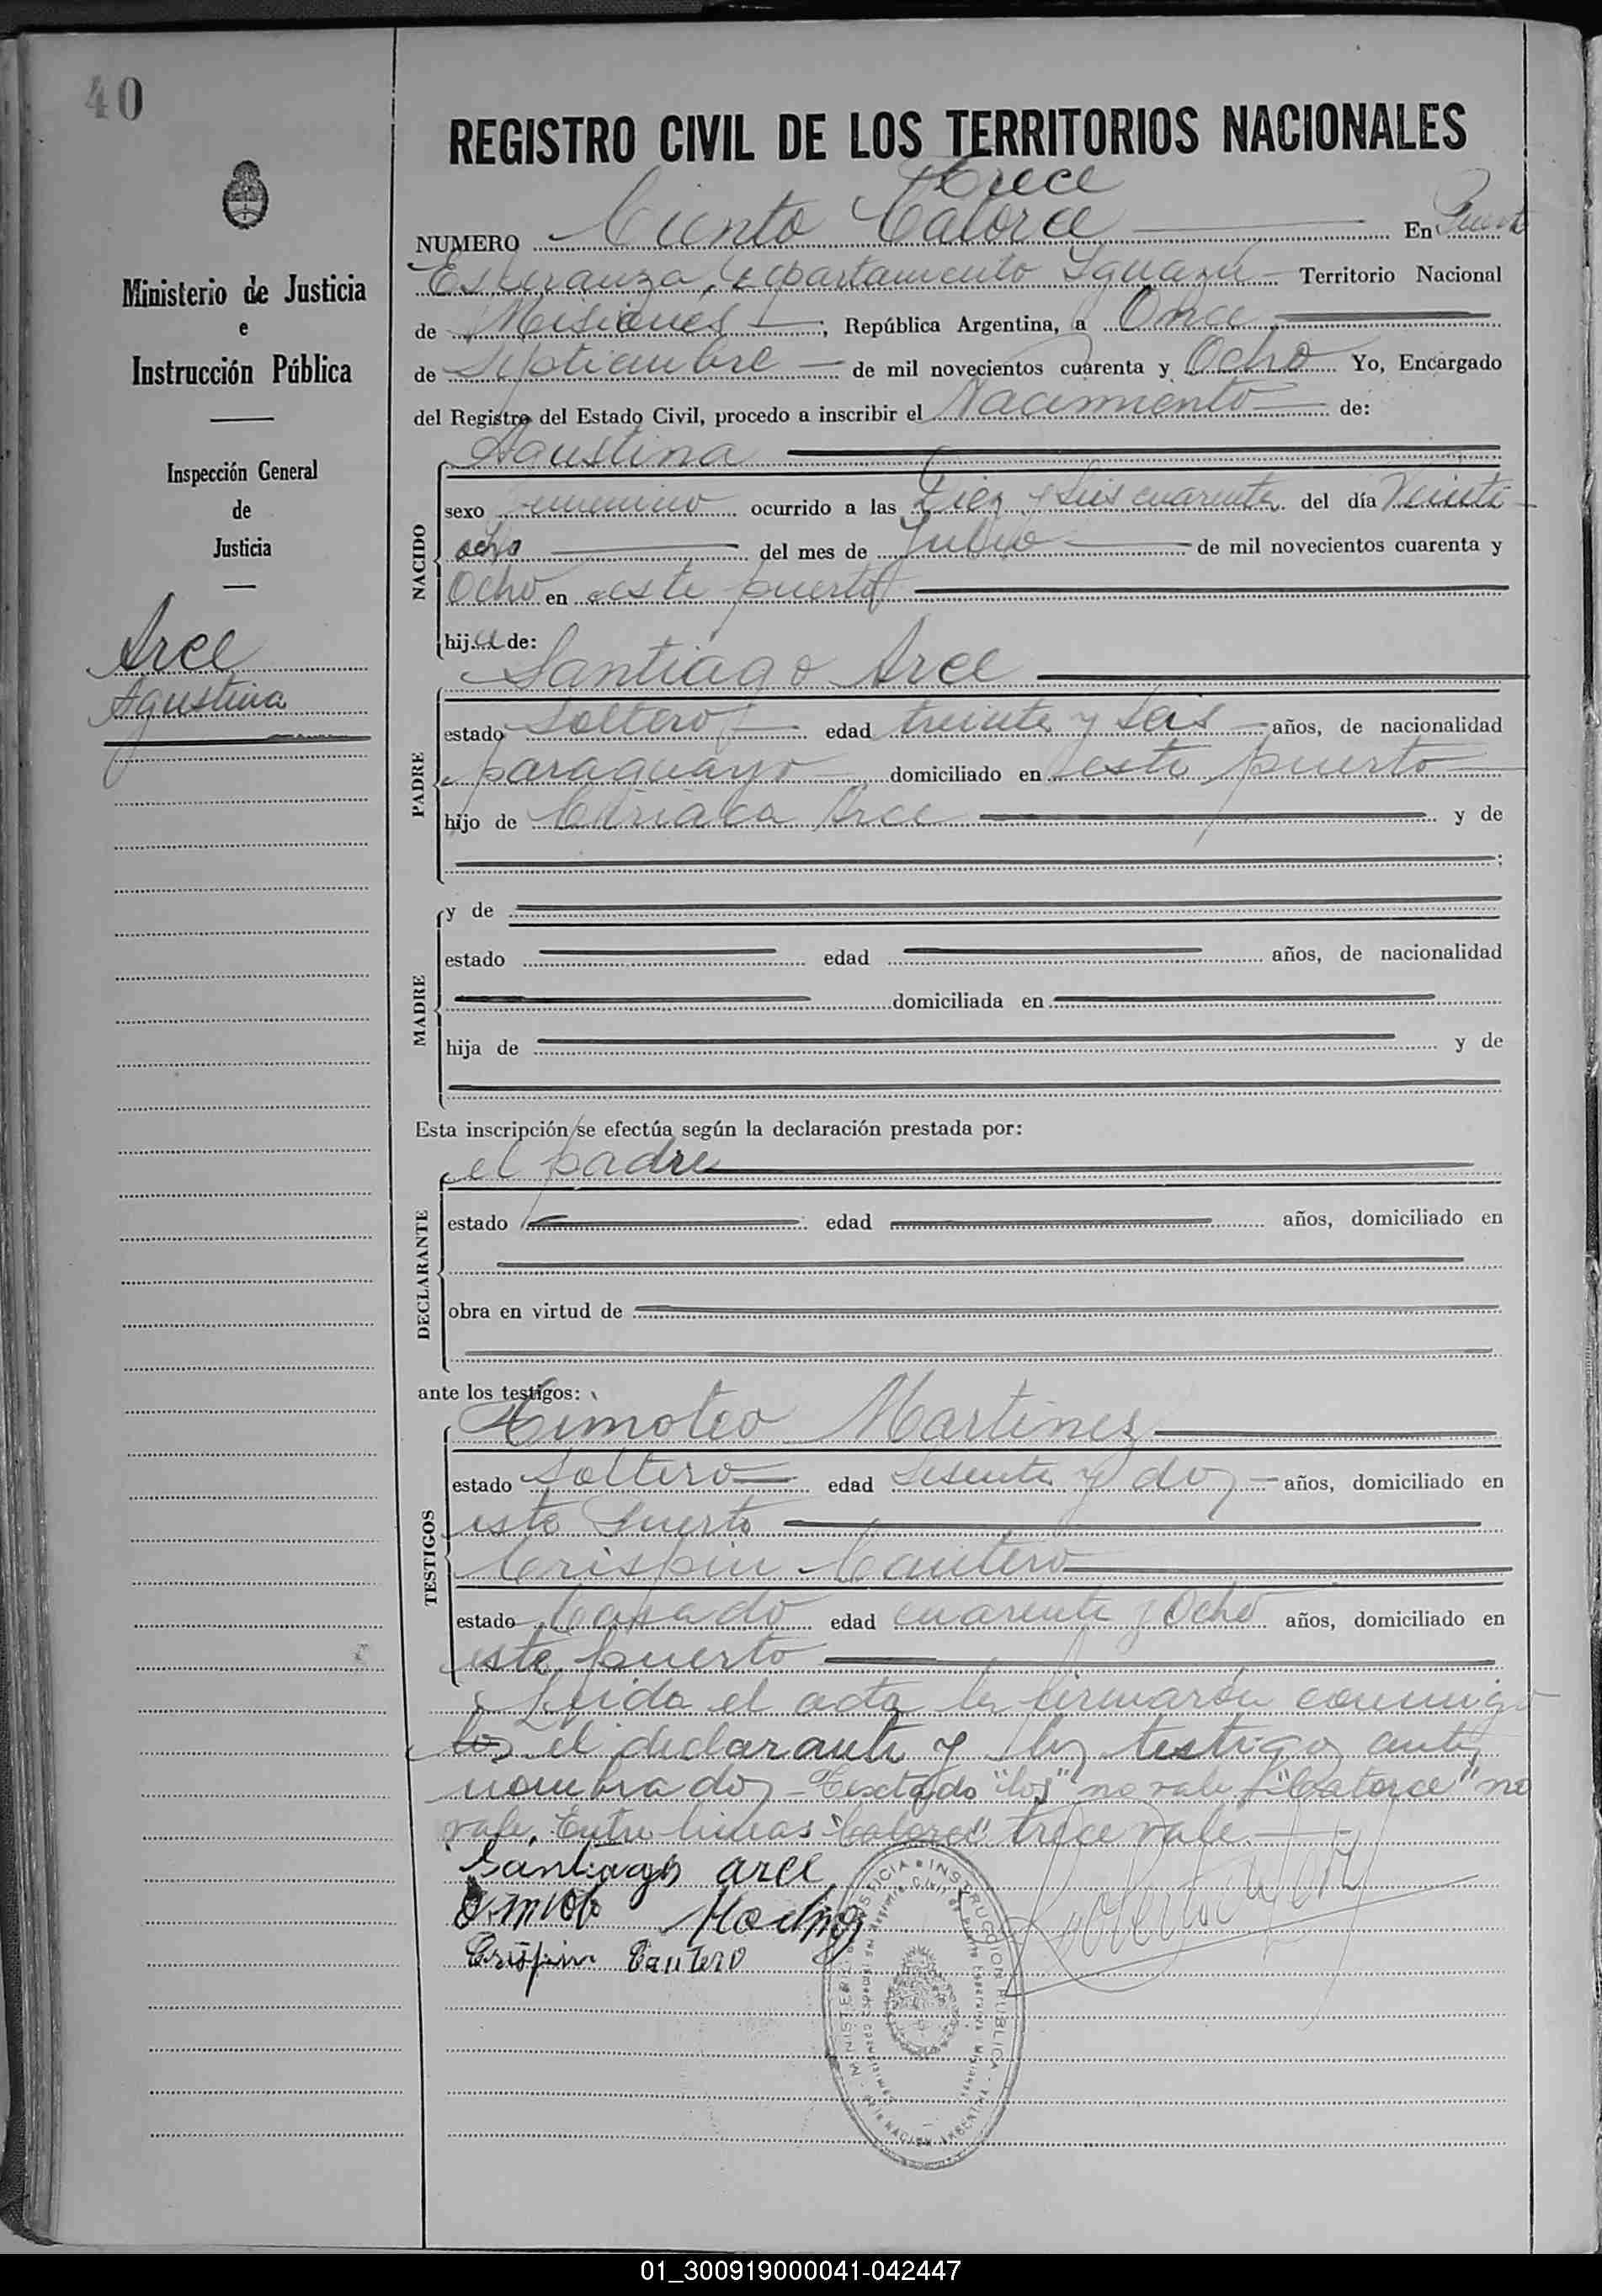 40
REGISTRO CIVIL DE LOS TERRITORIOS NACIONALES
Trece
NUMERO Ciento Catorce En Puerto
Esperanza, Departamento Iguazú Territorio Nacional
de Misiones; República Argentina, a Once
de Septiembre de mil novecientos cuarenta y Ocho Yo, Encargado
del Registro del Estado Civil, procedo a inscribir el Nacimiento de:
Ministerio de Justicia
e
Instrucción Pública
Inspección General
de
Justicia
Arce
Agustina
NACIDO
Agustina
sexo femenino ocurrido a las Diez y Seis cuarenta del día Veinti
ocho del mes de Julio de mil novecientos cuarenta y
Ocho en este puerto
hija de:
PADRE
Santiago Arce
estado Soltero edad treinta y Seis años, de nacionalidad
paraguayo domiciliado en este puerto
hijo de Ciriaca Arce y de
MADRE
y de
estado edad años, de nacionalidad
domiciliada en
hija de y de
Esta inscripción se efectúa según la declaración prestada por:
DECLARANTE
el padre
estado edad años, domiciliado en
obra en virtud de
ante los testigos:
TESTIGOS
Timoteo Martinez
estado Soltero edad Sesenta y dos años, domiciliado en
este Puerto
Crispin Cantero
estado Casado edad cuarenta y Ocho años, domiciliado en
este puerto
Leida el acta la firmarón conmigo
los el declarante y los testigos antes
nombrados - Testado "los" no vale "Catorce" no
vale. Entre lineas "Catorce" trece vale.
Santiago arce
Crispin Cantero
MINISTERIO DE JUSTICIA INSTRUCCION PUBLICA
DE LA NACION ARGENTINA
01_300919000041-042447